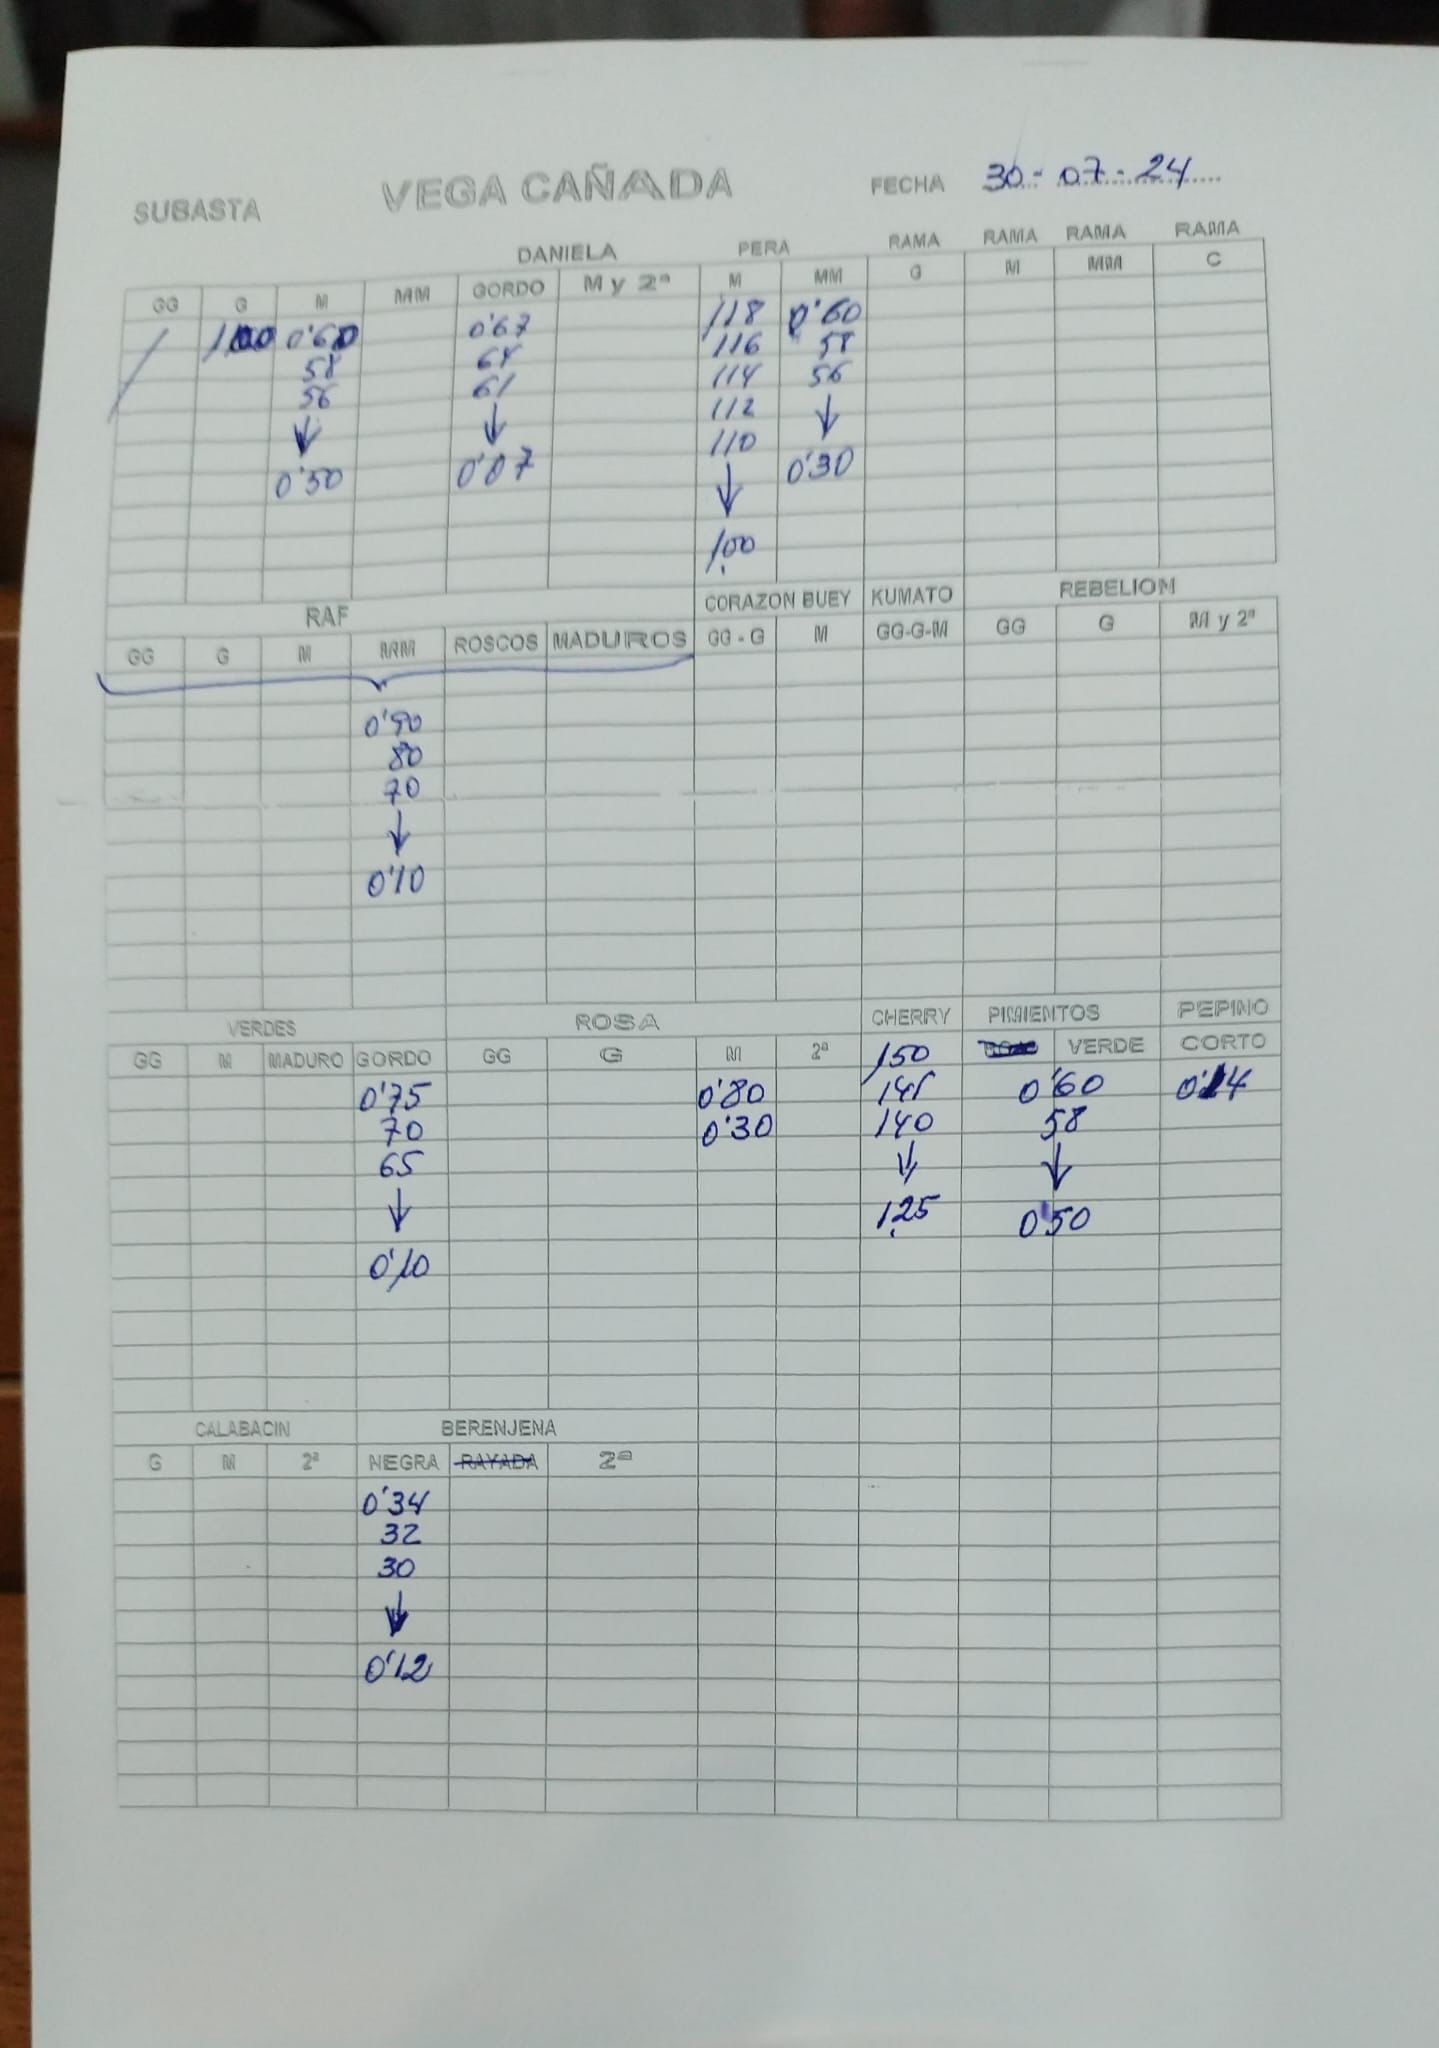 SUBASTA VEGA CAÑADA FECHA 30-07-24
DANIELA PERA RAMA RAMA RAMA RAMA
GG G M MM GORDO M y 2ª M MM G M MM C
0'60 0'67 118 0'60
58 64 116 58
56 61 114 56
↓ ↓ 112 ↓
0'50 0'07 110 0'30
↓
1.00
RAF CORAZON BUEY KUMATO REBELION
GG G M MRM ROSCOS MADUROS GG - G M GG-G-M GG G M y 2ª
0'90
80
70
↓
0'10
VERDES ROSA CHERRY PIMIENTOS PEPINO
GG M MADURO GORDO GG G M 2ª 150 VERDE CORTO
0'75 0'80 145 0'60 0'14
70 0'30 140 58
65 ↓ ↓
↓ 1.25 0'50
0'10
CALABACIN BERENJENA
G M 2ª NEGRA RAYADA 2ª
0'34
32
30
↓
0'12